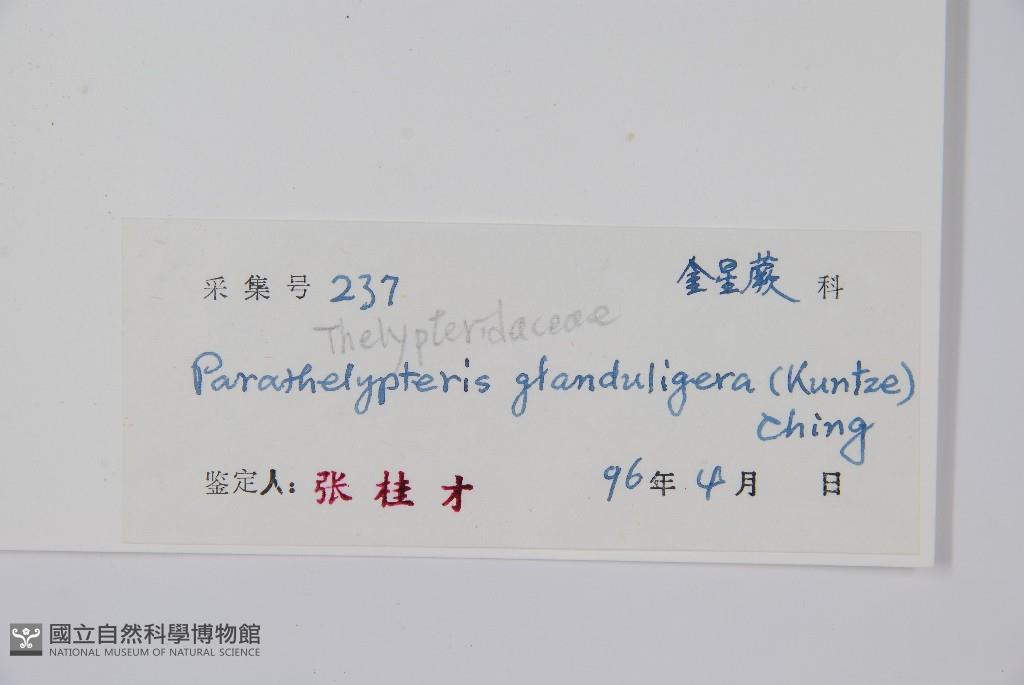 采集号 237 金星蕨 科
Thelypteridaceae
Parathelypteris glanduligera (Kuntze)
Ching
鉴定人: 张桂才 96年 4月 日
國立自然科學博物館
NATIONAL MUSEUM OF NATURAL SCIENCE